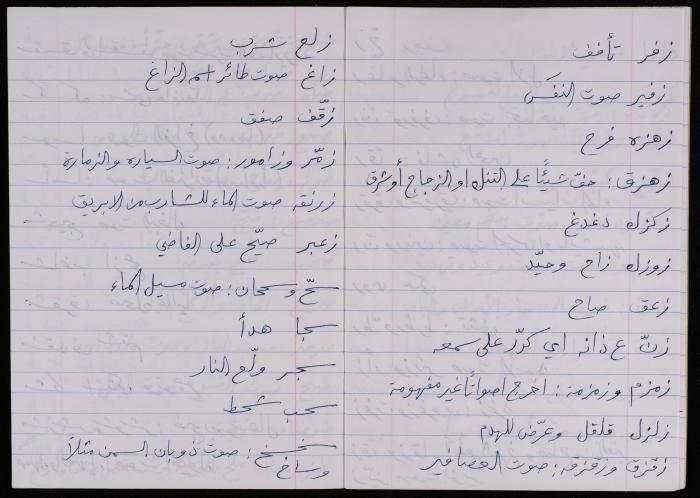 زفر تأفف
زفير صوت النفَس
زهزه فرح
زهزق: حف شيئًا على التنك او الزجاج أو شرق
زكزك دغدغ
زوزك زاح وحيّد
زعق صاح
زنّ ع ذانه اي كرّر على سمعه
زمزم وزمزمة: اخرج اصواتًا غير مفهومة
زلزل قلقل وعرّض للهدم
زقزق وزقزقه: صوت العصافير
زلع شرب
زاغ صوت طائر اسم الزاغ
زقّف صفق
زمّر وزامور: صوت السياره والزمارة
زرنقه صوت الماء للشارب من الابريق
زعبر صيّح على الفاضي
سحّ وسحان: صوت مسيل الماء
سجا هدأ
سجر ولّع النار
سحب شحط
سخسخ: صوت ذوبان السمن مثلاً
وساخ